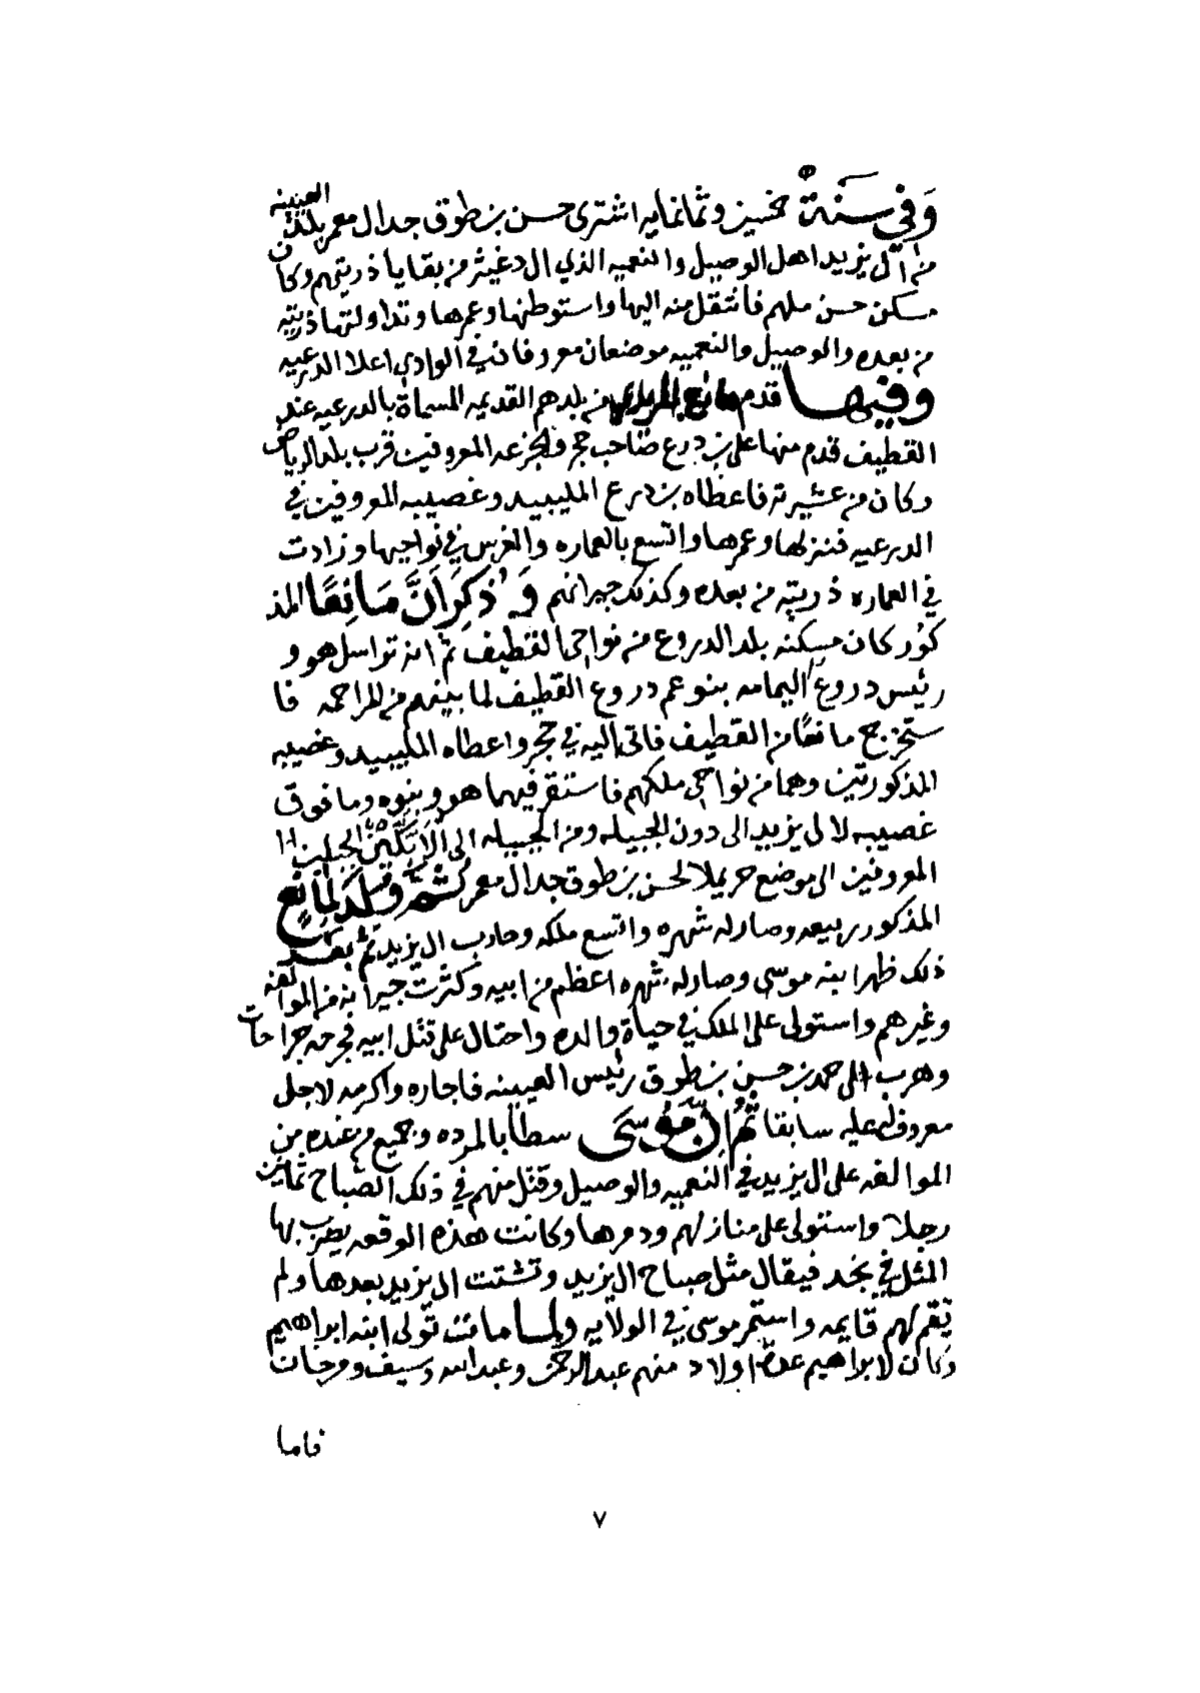 وَفي سَنَةْ خمسين وثمانمايه اشترى حسن بن طوق جد ال معمر بلد العيينه
من آل يزيد اهل الوصيل والنعميه الذي ال دغيثر من بقايا ذريتهم وكان
مسكن حسن ملهم فانتقل منه اليها واستوطنها وعمرها وتداولتها ذريته
من بعده والوصيل والنعميه موضعان معروفان في الوادي اعلا الدرعيه
وفيها قدم مانع المريدي من بلدهم القديمه المسماة بالدرعيه عند
القطيف قدم منها على بن درع صاحب حجر والجزعه المعروفين قرب بلد الرياض
وكان من عشيرته فاعطاه بن درع المليبيد وغصيبه المعروفين في
الدرعيه فنزلها وعمرها واتسع بالعماره والغرس في نواحيها وزادت
في العماره ذريته من بعده وكذلك جيرانهم وَذُكِرَ اَنَّ مَانِعًا المذ
كوُر كان مسكنه بلد الدروع من نواحي القطيف ثم انه تراسل هو و
رئيس دروع اليمامه بنو عم دروع القطيف لما بينهم من المراحمه فا
ستخرج مانعًا من القطيف فاتى اليه في حجر واعطاه المليبيد وغصيبه
المذكورتين وهما من نواحي ملكهم فاستقر فيهما هو وبنوه وما فوق
غصيبه لال يزيد الى دون الجبيله ومن الجبيله الى الاَبَكَّين الجبلين
المعروفين الى موضع حريملا لحسن بن طوق جد ال معمر ثم وُلِدَ لمانِعٍ
المذكور ربيعه وصار له شهره واتسع ملكه وحارب ال يزيد ثم بعد
ذلك ظهر ابنه موسى وصار له شهره اعظم من ابيه وكثرت جيرانه من الموالفه
وغيرهم واستولى على الملك في حياة والده واحتال على قتل ابيه فجرحه جراحات
وهرب الى حمد بن حسن بن طوق رئيس العيينه فاجاره واكرمه لاجل
معروف له عليه سابقا ثُم اِنَّ مُوسَى سطا بالمرده وجميع من عنده من
الموالفه على ال يزيد في النعميه والوصيل وقتل منهم في ذلك الصباح ثمانين
رجلا واستولى على منازلهم ودمرها وكانت هذه الوقعه يضرب بها
المثل في نجد فيقال مثل صباح ال يزيد وتشتت ال يزيد بعدها ولم
تقم لهم قايمه واستمر موسى في الولايه ولما مات تولى ابنه ابراهيم
وكان لابراهيم عدة اولاد منهم عبدالرحمن وعبدالله وسيف ومرخان
فاما
٧